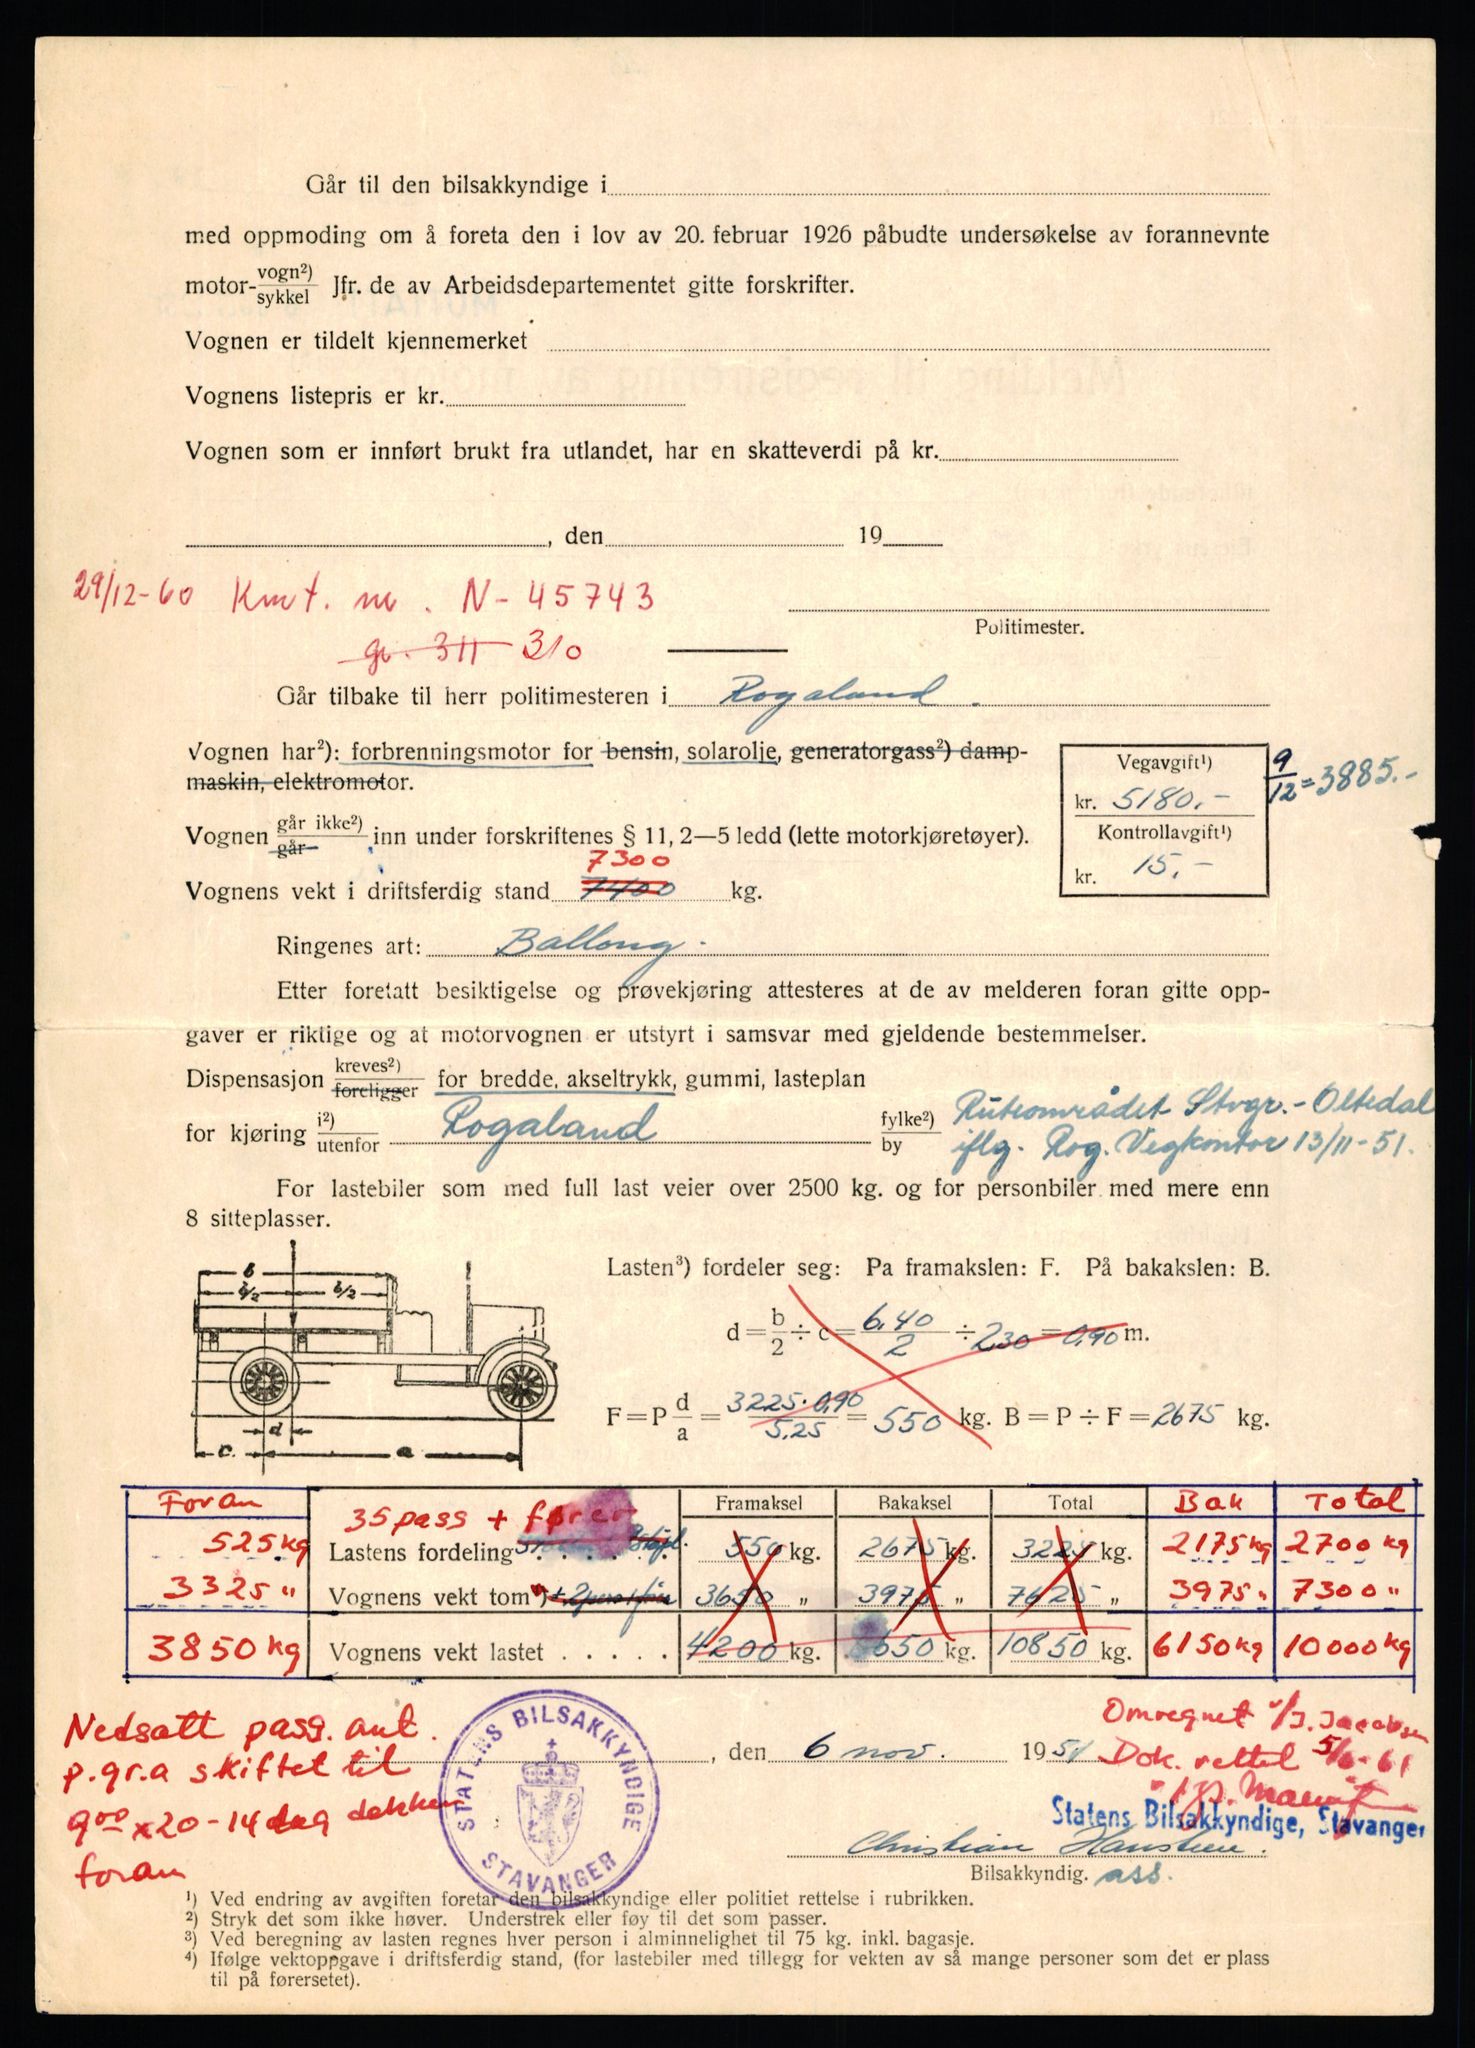 Går til den bilsakkyndige i
med oppmoding om å foreta den i lov av 20. februar 1926 påbudte undersøkelse av forannevnte
motor-vogn²)/sykkel Jfr. de av Arbeidsdepartementet gitte forskrifter.
Vognen er tildelt kjennemerket
Vognens listepris er kr.
Vognen som er innført brukt fra utlandet, har en skatteverdi på kr.
, den 19
29/12-60 Kmt. nr. N-45743
Politimester.
gr. 311 310
Går tilbake til herr politimesteren i Rogaland.
Vognen har²): forbrenningsmotor for bensin, solarolje, generatorgass²) damp-
maskin, elektromotor.
Vegavgift¹)
kr. 5180.-
9/12 = 3885.-
Kontrollavgift¹)
kr. 15.-
Vognen går ikke²)/går inn under forskriftenes § 11, 2—5 ledd (lette motorkjøretøyer).
7300
Vognens vekt i driftsferdig stand 7400 kg.
Ringenes art: Ballong.
Etter foretatt besiktigelse og prøvekjøring attesteres at de av melderen foran gitte opp-
gaver er riktige og at motorvognen er utstyrt i samsvar med gjeldende bestemmelser.
Dispensasjon kreves²)/foreligger for bredde, akseltrykk, gummi, lasteplan
for kjøring i²)/utenfor Rogaland fylke²)/by Ruteområdet Stvgr.-Oltedal
iflg. Rog. Vegkontor 13/11-51.
For lastebiler som med full last veier over 2500 kg. og for personbiler med mere enn
8 sitteplasser.
b
b/2 b/2
d
c. a
Lasten³) fordeler seg: Pa framakslen: F. På bakakslen: B.
d = b/2 ÷ c = 6.40/2 ÷ 2.30 = 0.90 m.
F = P d/a = 3225·0.90/5.25 = 550 kg. B = P ÷ F = 2675 kg.
Foran 35 pass + fører Framaksel Bakaksel Total Bak Total
525 kg Lastens fordeling 550 kg. 2675 kg. 3225 kg. 2175 kg 2700 kg
3325 " Vognens vekt tom⁴) 3650 „ 3975 „ 7625 „ 3975 " 7300 "
3850 kg Vognens vekt lastet . . . . . 4200 kg. 6650 kg. 10850 kg. 6150 kg 10000 kg
Nedsatt pass. ant.
p.gr.a skiftet til
900 x 20 - 14 lag dekker
foran
STATENS BILSAKKYNDIGE
STAVANGER
, den 6 nov. 1951
Omregnet v/J. Jacobsen
Dok. rettet 5/6-61
Statens Bilsakkyndige, Stavanger
Christian Hansteen.
Bilsakkyndig. ass.
¹) Ved endring av avgiften foretar den bilsakkyndige eller politiet rettelse i rubrikken.
²) Stryk det som ikke høver. Understrek eller føy til det som passer.
³) Ved beregning av lasten regnes hver person i alminnelighet til 75 kg. inkl. bagasje.
⁴) Ifølge vektoppgave i driftsferdig stand, (for lastebiler med tillegg for vekten av så mange personer som det er plass
til på førersetet).